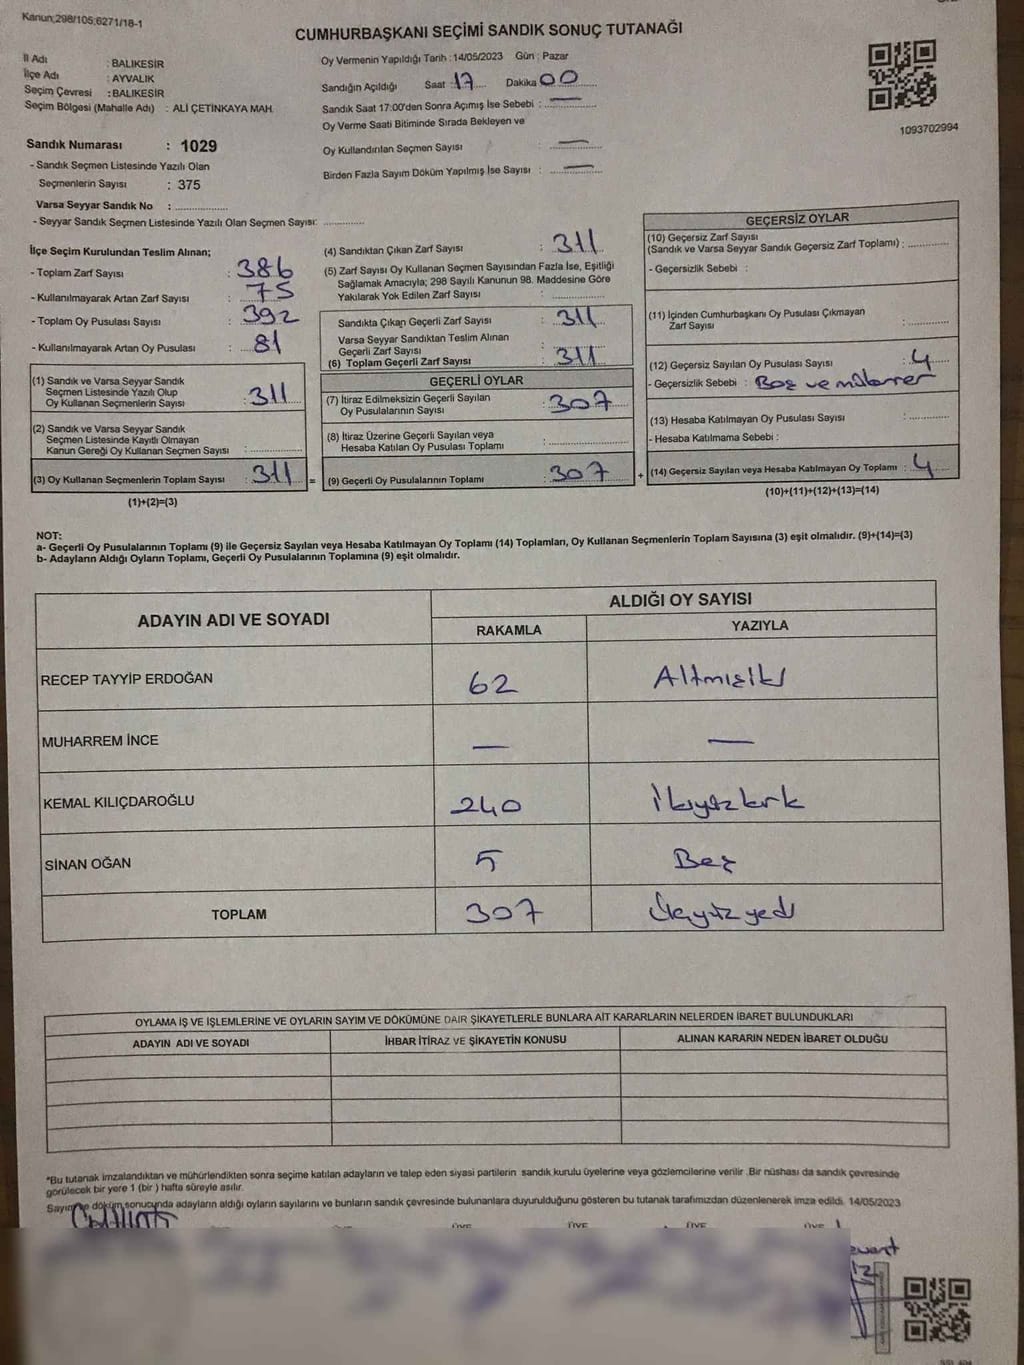 Kanun;298/105;6271/18-1
CUMHURBAŞKANI SEÇİMİ SANDIK SONUÇ TUTANAĞI
İl Adı : BALIKESİR
İlçe Adı : AYVALIK
Seçim Çevresi : BALIKESİR
Seçim Bölgesi (Mahalle Adı) : ALİ ÇETİNKAYA MAH.
Oy Vermenin Yapıldığı Tarih : 14/05/2023 Gün : Pazar
Sandığın Açıldığı Saat : 17 Dakika 00
Sandık Saat 17:00'den Sonra Açımış İse Sebebi : —
Oy Verme Saati Bitiminde Sırada Bekleyen ve
Oy Kullandırılan Seçmen Sayısı : —
Birden Fazla Sayım Döküm Yapılmış İse Sayısı : —
1093702994
Sandık Numarası : 1029
- Sandık Seçmen Listesinde Yazılı Olan
Seçmenlerin Sayısı : 375
Varsa Seyyar Sandık No : ....................
- Seyyar Sandık Seçmen Listesinde Yazılı Olan Seçmen Sayısı: ..............
İlçe Seçim Kurulundan Teslim Alınan;
- Toplam Zarf Sayısı : 386
- Kullanılmayarak Artan Zarf Sayısı : 75
- Toplam Oy Pusulası Sayısı : 392
- Kullanılmayarak Artan Oy Pusulası : 81
(1) Sandık ve Varsa Seyyar Sandık
Seçmen Listesinde Yazılı Olup
Oy Kullanan Seçmenlerin Sayısı : 311
(2) Sandık ve Varsa Seyyar Sandık
Seçmen Listesinde Kayıtlı Olmayan
Kanun Gereği Oy Kullanan Seçmen Sayısı : ..............
(3) Oy Kullanan Seçmenlerin Toplam Sayısı : 311 =
(1)+(2)=(3)
(4) Sandıktan Çıkan Zarf Sayısı : 311
(5) Zarf Sayısı Oy Kullanan Seçmen Sayısından Fazla İse, Eşitliği
Sağlamak Amacıyla; 298 Sayılı Kanunun 98. Maddesine Göre
Yakılarak Yok Edilen Zarf Sayısı : ..............
Sandıkta Çıkan Geçerli Zarf Sayısı : 311
Varsa Seyyar Sandıktan Teslim Alınan
Geçerli Zarf Sayısı : ..............
(6) Toplam Geçerli Zarf Sayısı : 311
GEÇERLİ OYLAR
(7) İtiraz Edilmeksizin Geçerli Sayılan
Oy Pusulalarının Sayısı : 307
(8) İtiraz Üzerine Geçerli Sayılan veya
Hesaba Katılan Oy Pusulası Toplamı : ..............
(9) Geçerli Oy Pusulalarının Toplamı : 307 +
GEÇERSİZ OYLAR
(10) Geçersiz Zarf Sayısı
(Sandık ve Varsa Seyyar Sandık Geçersiz Zarf Toplamı) : ..............
- Geçersizlik Sebebi :
(11) İçinden Cumhurbaşkanı Oy Pusulası Çıkmayan
Zarf Sayısı : ..............
(12) Geçersiz Sayılan Oy Pusulası Sayısı : 4
- Geçersizlik Sebebi : Boş ve
(13) Hesaba Katılmayan Oy Pusulası Sayısı : ..............
- Hesaba Katılmama Sebebi :
(14) Geçersiz Sayılan veya Hesaba Katılmayan Oy Toplamı : 4
(10)+(11)+(12)+(13)=(14)
NOT:
a- Geçerli Oy Pusulalarının Toplamı (9) ile Geçersiz Sayılan veya Hesaba Katılmayan Oy Toplamı (14) Toplamları, Oy Kullanan Seçmenlerin Toplam Sayısına (3) eşit olmalıdır. (9)+(14)=(3)
b- Adayların Aldığı Oyların Toplamı, Geçerli Oy Pusulalarının Toplamına (9) eşit olmalıdır.
ADAYIN ADI VE SOYADI ALDIĞI OY SAYISI
RAKAMLA YAZIYLA
RECEP TAYYİP ERDOĞAN 62 Altmışiki
MUHARREM İNCE — —
KEMAL KILIÇDAROĞLU 240 İkiyüzkırk
SİNAN OĞAN 5 Beş
TOPLAM 307 Üçyüzyedi
OYLAMA İŞ VE İŞLEMLERİNE VE OYLARIN SAYIM VE DÖKÜMÜNE DAİR ŞİKAYETLERLE BUNLARA AİT KARARLARIN NELERDEN İBARET BULUNDUKLARI
ADAYIN ADI VE SOYADI İHBAR İTİRAZ VE ŞİKAYETİN KONUSU ALINAN KARARIN NEDEN İBARET OLDUĞU
*Bu tutanak imzalandıktan ve mühürlendikten sonra seçime katılan adayların ve talep eden siyasi partilerin sandık kurulu üyelerine veya gözlemcilerine verilir. Bir nüshası da sandık çevresinde
görülecek bir yere 1 (bir ) hafta süreyle asılır.
Sayım ve döküm sonucunda adayların aldığı oyların sayılarını ve bunların sandık çevresinde bulunanlara duyurulduğunu gösteren bu tutanak tarafımızdan düzenlenerek imza edildi. 14/05/2023
ÜYE ÜYE ÜYE ÜYE